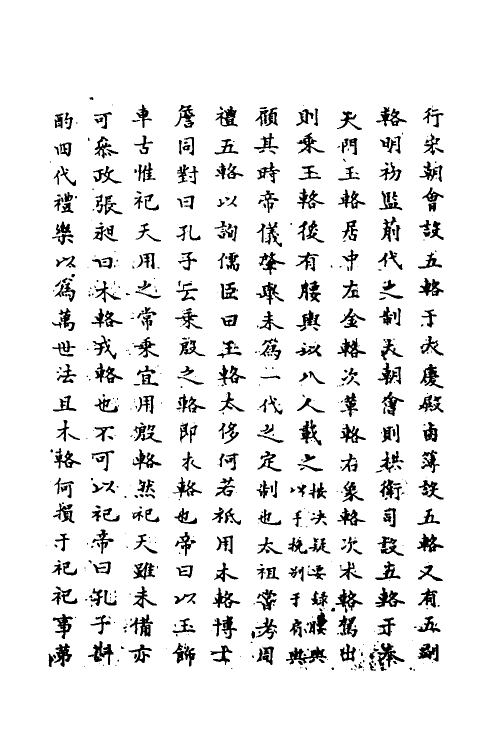 行宋朝會設五輅于大慶殿鹵簿設五輅又有五副
輅明初監前代之制大朝會則拱衛司設五輅于奉
天門玉輅居中左金輅次革輅右象輅次木輅駕出
則乘玉輅後有腰輿以八人載之按決疑要錄腰輿以手挽別于肩輿
顧其時帝儀肇舉未爲一代之定制也太祖嘗考周
禮五輅以詢儒臣曰玉輅太侈何若祗用木輅博士
詹同對曰孔子云乘殷之輅即木輅也帝曰以玉飾
車古惟祀天用之常乘宜用殷輅然祀天雖未備亦
可叅政張昶曰木輅戎輅也不可以祀帝曰孔子斟
酌四代禮樂以爲萬世法且木輅何損于祀祀事第